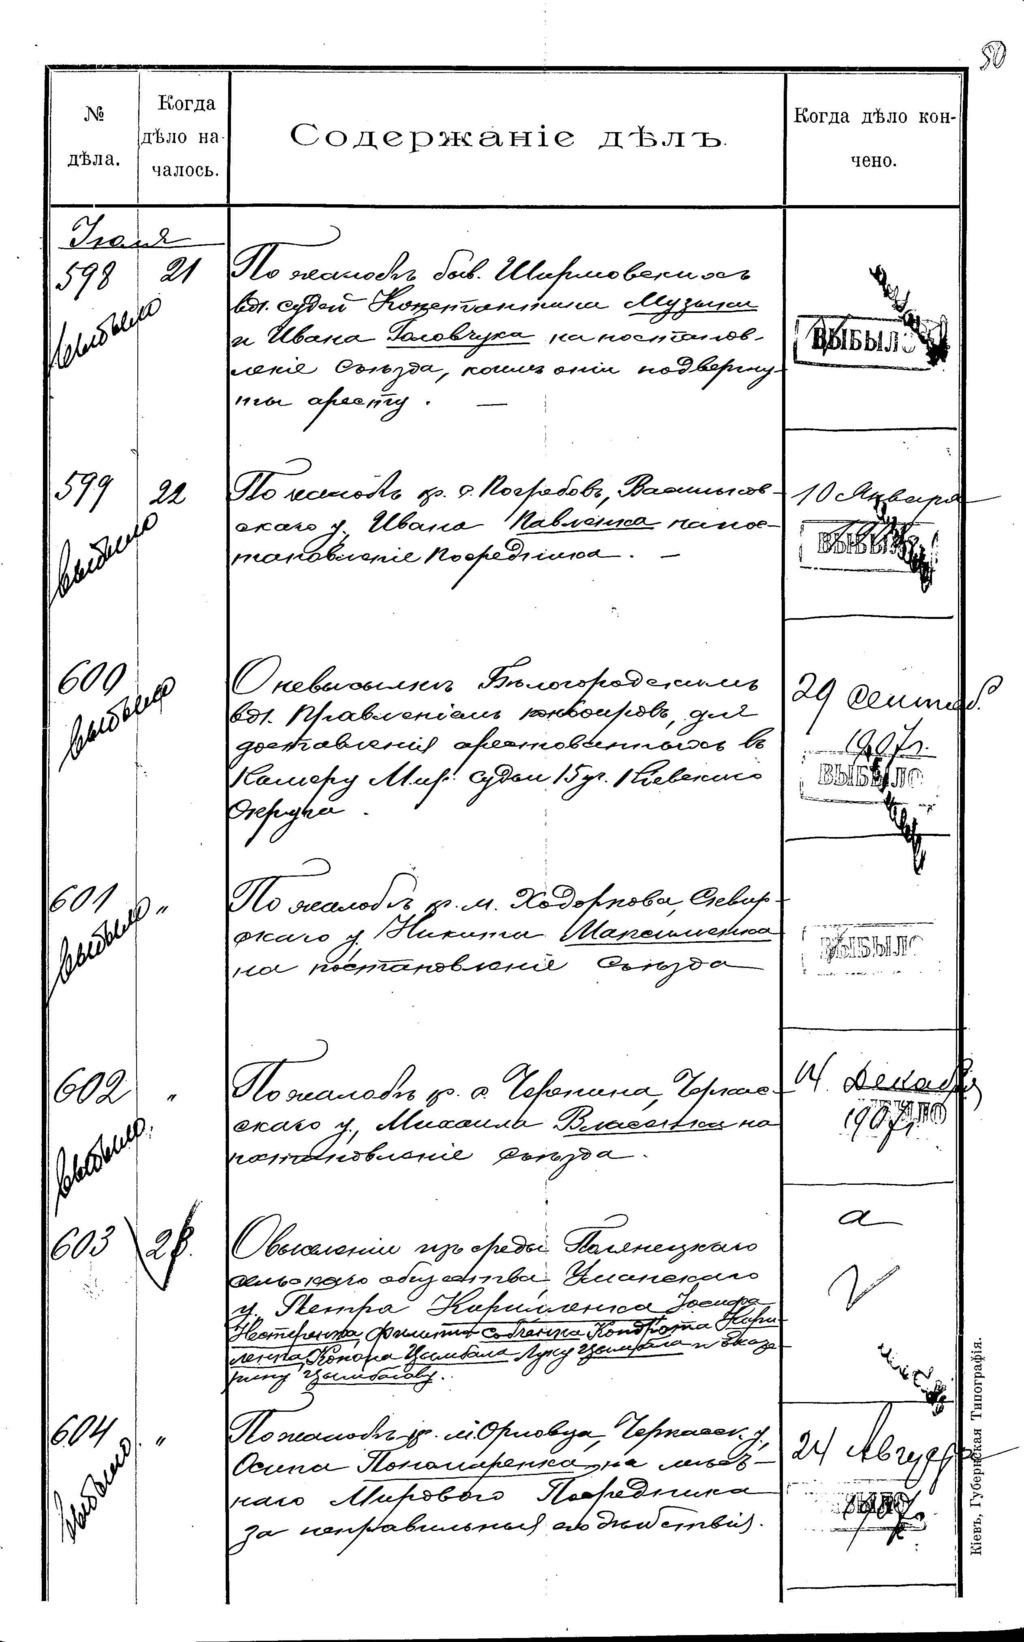 50
№ дѣла.
Когда дѣло началось.
Содержаніе дѣлъ.
Когда дѣло кончено.
Іюля
598 21
выбыло
По жалобѣ быв. Ширмовскихъ
вол. судей Константина Музыки
и Ивана Головчука на постанов-
леніе Съѣзда, коимъ они подвергну-
ты аресту. —
ВЫБЫЛО
599 22
выбыло
По жалобѣ кр. с. Погребовъ, Васильков-
скаго у. Ивана Павленка на пос-
тановленіе Посредника. —
10 Января
ВЫБЫЛО
600
выбыло
О невысылкѣ Бѣлогородскимъ
вол. Правленіемъ конвоировъ, для
доставленія арестованныхъ въ
Камеру Мир. судьи 15 уч. Кіевскаго
Округа.
29 Сентяб.
1907 г.
ВЫБЫЛО
601 "
выбыло
По жалобѣ кр. м. Ходоркова, Сквир-
скаго у. Никиты Максименка
на постановленіе Съѣзда
ВЫБЫЛО
602 "
выбыло
По жалобѣ кр. с. Черепина, Черкас-
скаго у., Михаила Власенка на
постановленіе Съѣзда.
14 Декабря
1907 г.
603
О выселеніи изъ среды
сельскаго общества Уманскаго
у. Петра Кириленка Іосифа
Нестеренка, Филиппа Кондрата Кири-
ленка, Конона Цымбала Луку Цымбала и Екате-
рину Цымбалову.
а
604 "
выбыло
По жалобѣ кр. м. Орловца, Черкасск. у.,
Осипа Пономаренка, на мѣст-
наго Мирового Посредника
за неправильныя его дѣйствія.
24 Августа
1907.
Кіевъ, Губернская Типографія.